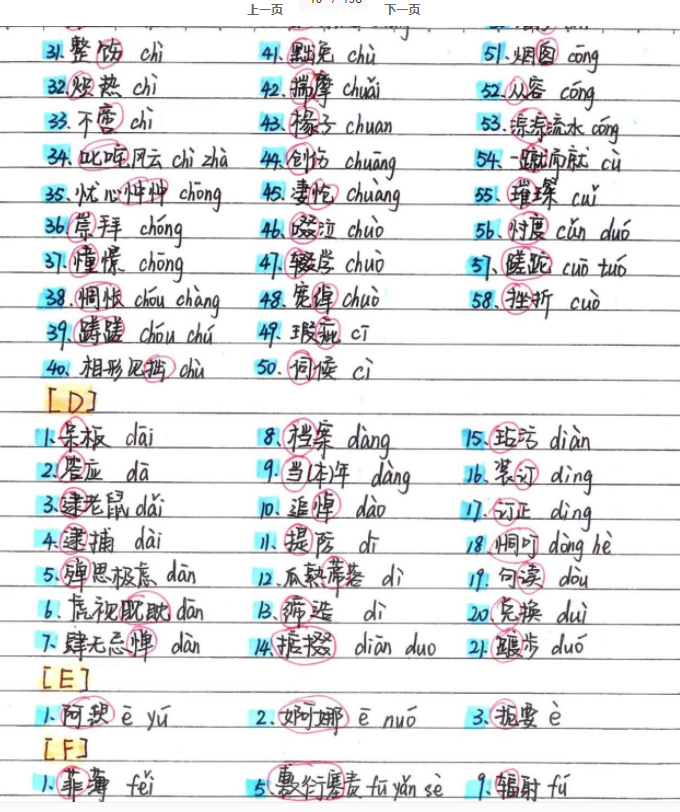 上一页 下一页
31.整饬 chì 41.黜免 chù 51.烟囱 cōng
32.炽热 chì 42.揣摩 chuǎi 52.从容 cóng
33.不啻 chì 43.椽子 chuan 53.淙淙流水 cóng
34.叱咤风云 chì zhà 44.创伤 chuāng 54.一蹴而就 cù
35.忧心忡忡 chōng 45.凄怆 chuàng 55.璀璨 cuǐ
36.崇拜 chóng 46.啜泣 chuò 56.忖度 cǔn duó
37.憧憬 chōng 47.辍学 chuò 57.蹉跎 cuō tuó
38.惆怅 chóu chàng 48.宽绰 chuò 58.挫折 cuò
39.踌躇 chóu chú 49.瑕疵 cī
40.相形见绌 chù 50.伺候 cì
[D]
1.呆板 dāi 8.档案 dàng 15.玷污 diàn
2.答应 dā 9.当(本)年 dàng 16.装订 dìng
3.逮老鼠 dǎi 10.追悼 dào 17.订正 dìng
4.逮捕 dài 11.提防 dī 18.恫吓 dòng hè
5.殚思极虑 dān 12.瓜熟蒂落 dì 19.句读 dòu
6.虎视眈眈 dān 13.缔造 dì 20.兑换 duì
7.肆无忌惮 dàn 14.掂掇 diān duo 21.踱步 duó
[E]
1.阿谀 ē yú 2.婀娜 ē nuó 3.扼要 è
[F]
1.菲薄 fěi 5.敷衍塞责 fū yǎn sè 9.辐射 fú